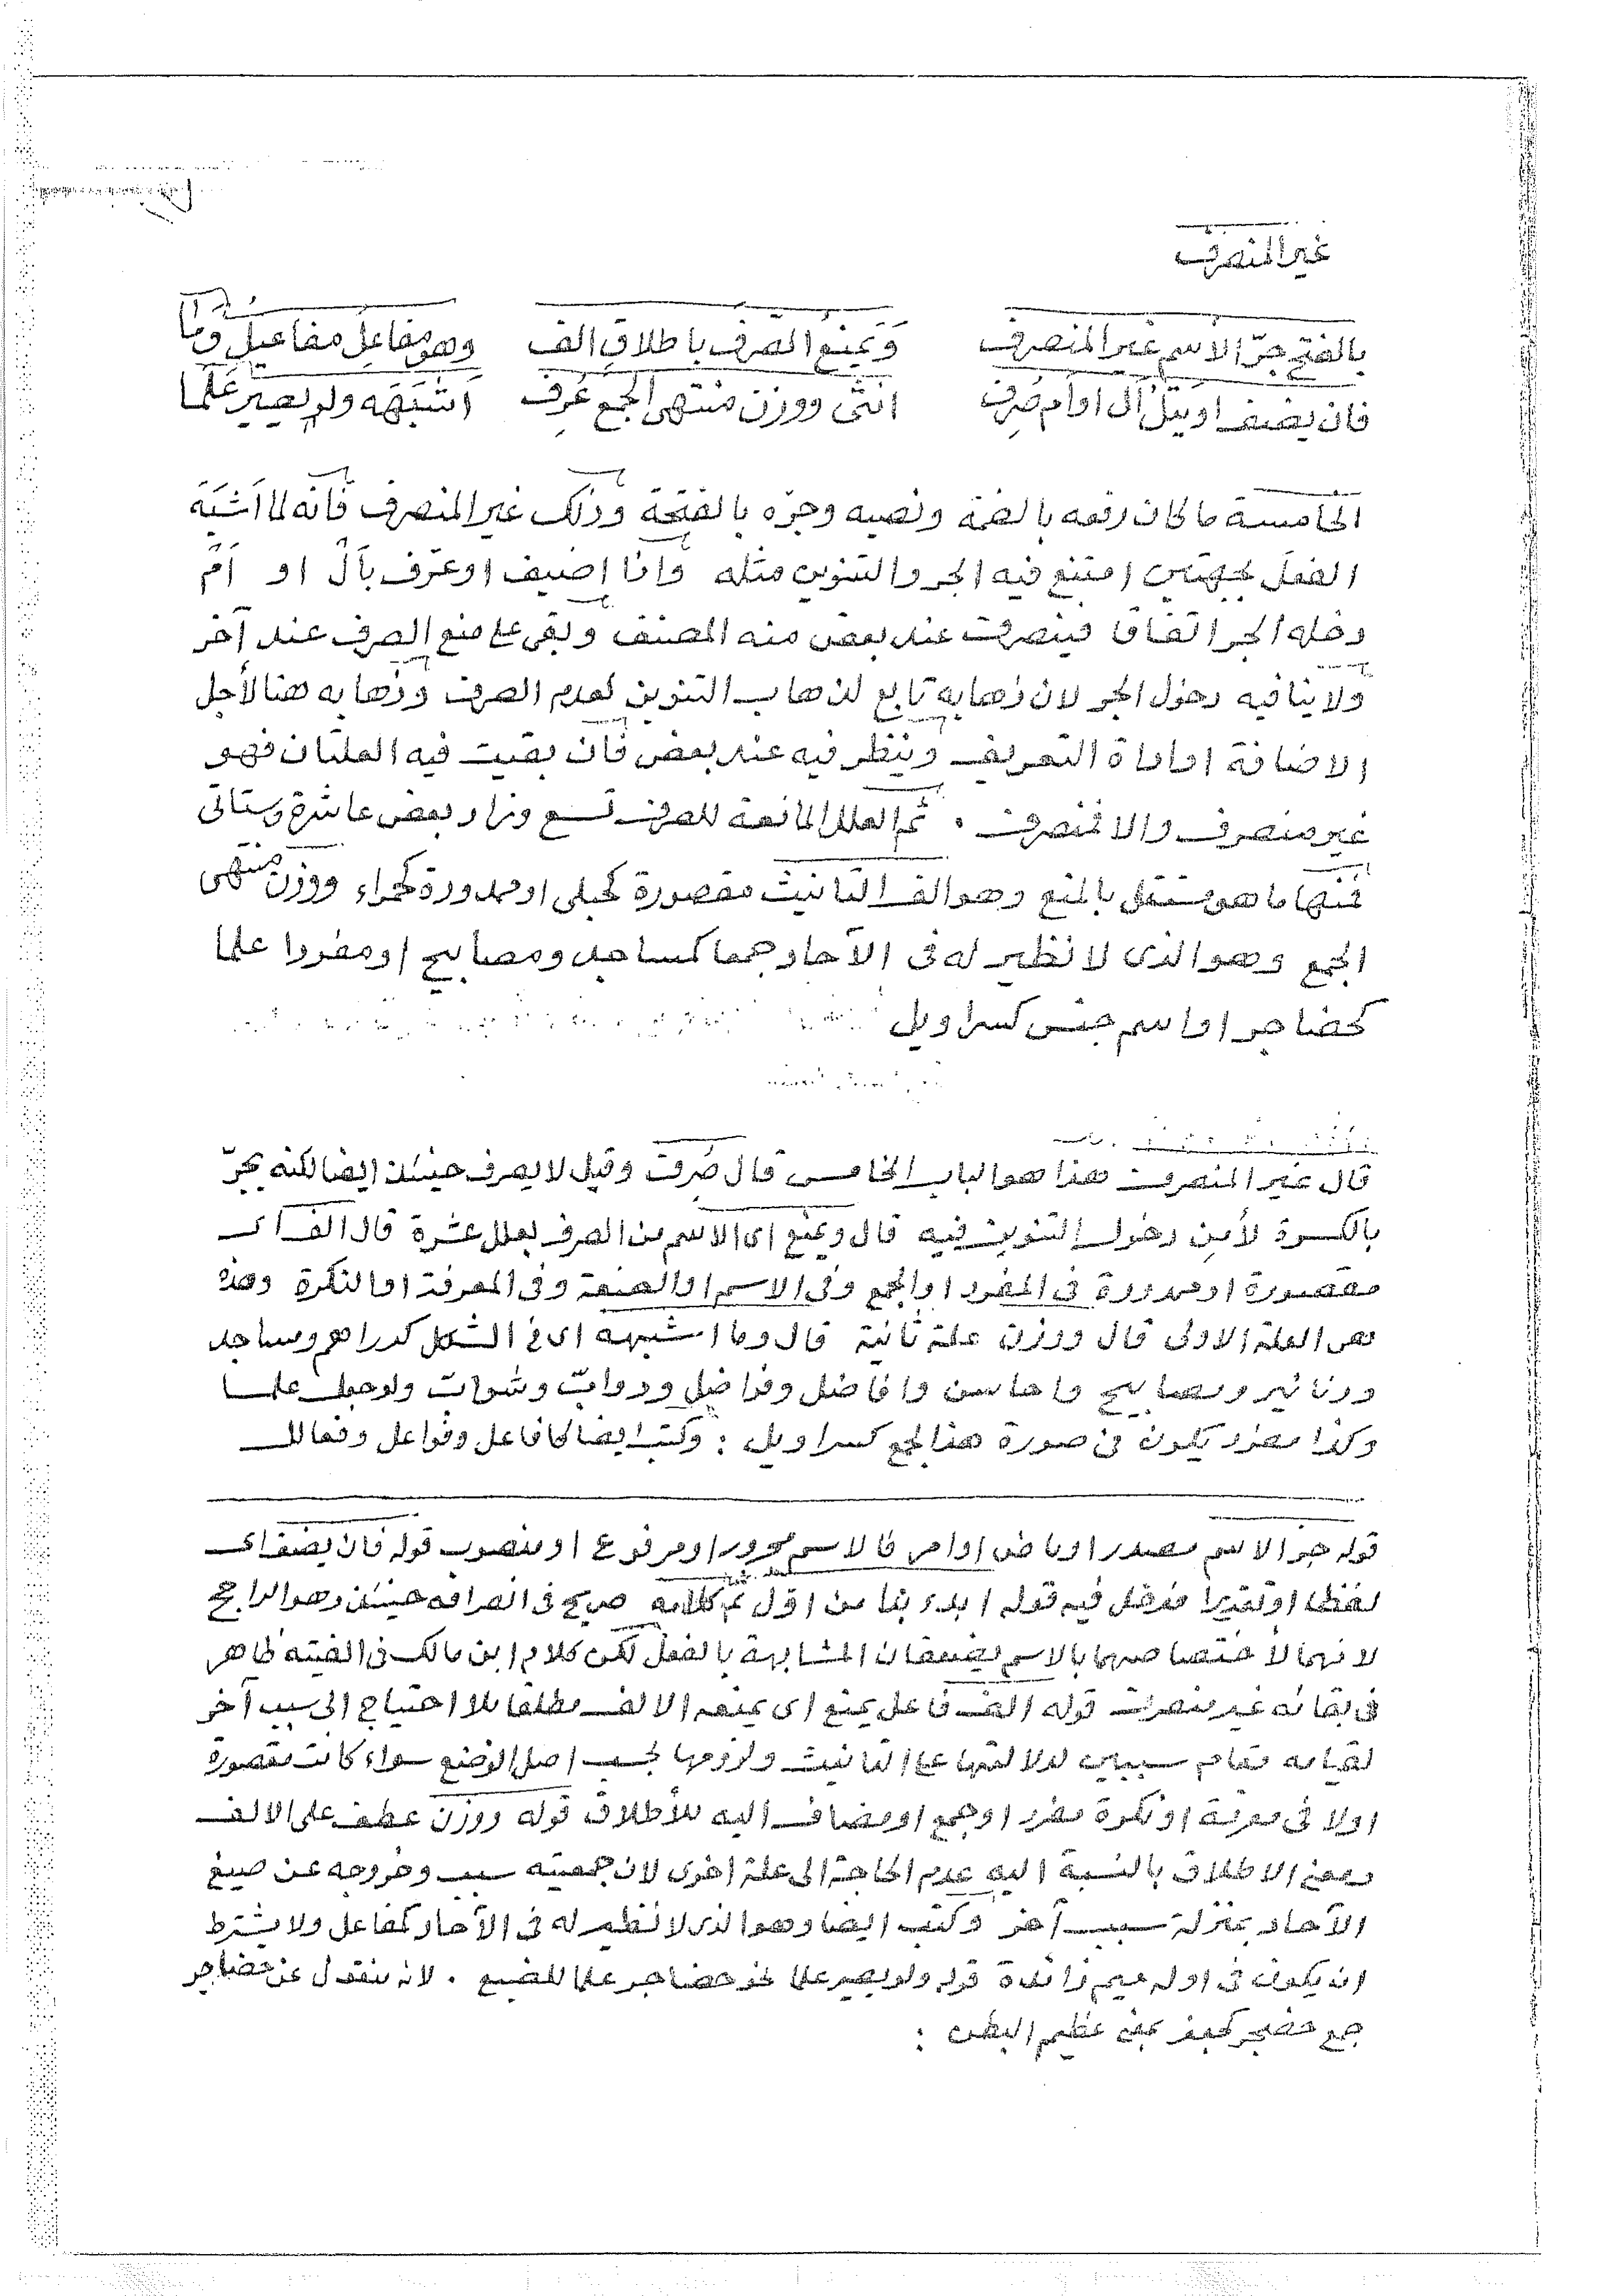 غير المنصرف
بالفتح جرّ الاسم غير المنصرف وَيمنع الصّرف باطلاقِ الف وهو مفاعل مفاعيل وما
فان يضف او يتل ال او أم صُرِف انثى ووزن منتهى الجمع عُرِف اَشبَهَه ولو يصير عَلَما
الخامسة ما كان رفعه بالضمة ونصبه وجرّه بالفتحة وذلك غير المنصرف فانه لما اَشبَهَ
الفعل بجهتين امتنع فيه الجر والتنوين مثله واذا اضيف او عرّف بأل او أم
دخله الجر اتفاقا فينصرف عند بعض منه المصنف وبقى على منع الصرف عند آخر
ولا ينافيه دخول الجر لان ذهابه تابع لذهاب التنوين لعدم الصرف وذهابه هنا لأجل
الاضافة او اداة التعريف وينظر فيه عند بعض فان بقيت فيه العلتان فهو
غير منصرف والا فمنصرف . ثم العلل المانعة للصرف تسع وزاد بعض عاشرة وستاتى
فمنها ما هو مستقل بالمنع وهو الف التانيث مقصورة كحبلى او ممدودة كحمراء ووزن منتهى
الجمع وهو الذى لا نظير له فى الآحاد جمعا كمساجد ومصابيح او مفردا علما
كحضاجر او اسم جنس كسراويل
قال غير المنصرف هذا هو الباب الخامس قال صُرِف وقيل لا يصرف حينئذ ايضا لكنه يجرّ
بالكسرة لأمن دخول التنوين فيه قال ويمنع اى الاسم من الصرف بعلل عشرة قال الف اى
مقصورة او ممدودة فى المفرد او الجمع وفى الاسم او الصفة وفى المعرفة او النكرة وهذه
هى العلة الاولى قال ووزن علة ثانية قال وما اشبهه اى فى الشكل كدراهم ومساجد
ودنانير ومصابيح واحاسن وافاضل وفواضل ودوابّ وشوابّ ولو جعل علما
وكذا مفرد يكون فى صورة هذا الجمع كسراويل : وكتب ايضا كافاعل وفواعل وفعالل
قوله جر الاسم مصدر او ماض او امر فالاسم مجرور او مرفوع او منصوب قوله فان يضف اى
لفظا او تقديرا فدخل فيه قوله ابدء بذا من اوّل ثم كلامه صريح فى انصرافه حينئذ وهو الراجح
لانهما لأختصاصهما بالاسم يضعفان المشابهة بالفعل لكن كلام ابن مالك فى الفيته ظاهر
فى بقائه غير منصرف قوله الف فاعل يمنع اى يمنعه الالف مطلقا بلا احتياج الى سبب آخر
لقيامه مقام سببين لدلالتها على التانيث ولزومها بحسب اصل الوضع سواء كانت مقصورة
اولا فى معرفة او نكرة مفرد او جمع او مضاف اليه للأطلاق قوله ووزن عطف على الالف
ومعنى الاطلاق بالنسبة اليه عدم الحاجة الى علة اخرى لان جمعيته سبب وخروجه عن صيغ
الآحاد بمنزلة سبب آخر وكتب ايضا وهو الذى لا نظير له فى الآحاد كمفاعل ولا يشترط
ان يكون فى اوله ميم زائدة قوله ولو يصير علما نحو حضاجر علما للضبع . لانه منقول عن حضاجر
جمع حضجر بمعنى عظيم البطن :